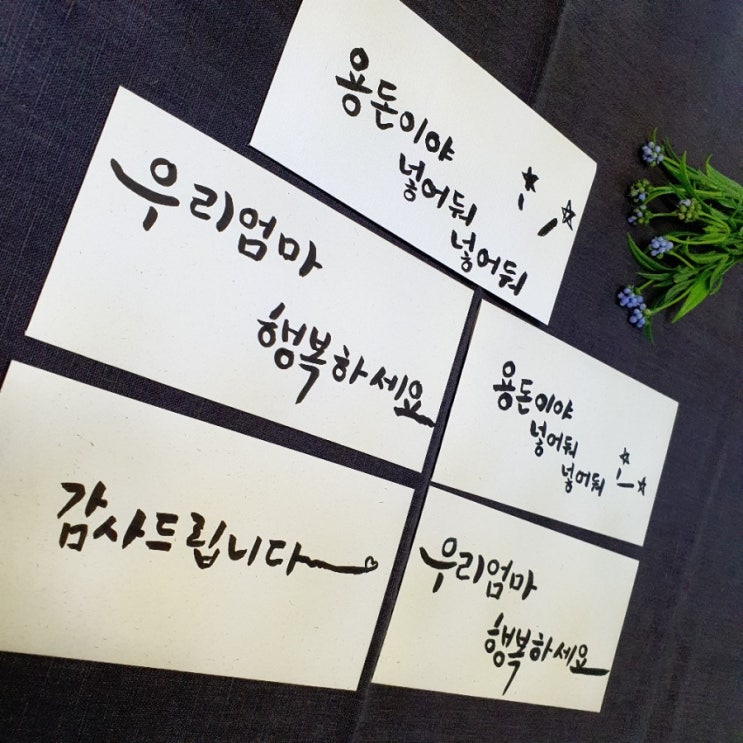 용돈이야
넣어둬
넣어둬
우리엄마
행복하세요
감사드립니다
용돈이야
넣어둬
넣어둬
우리엄마
행복하세요